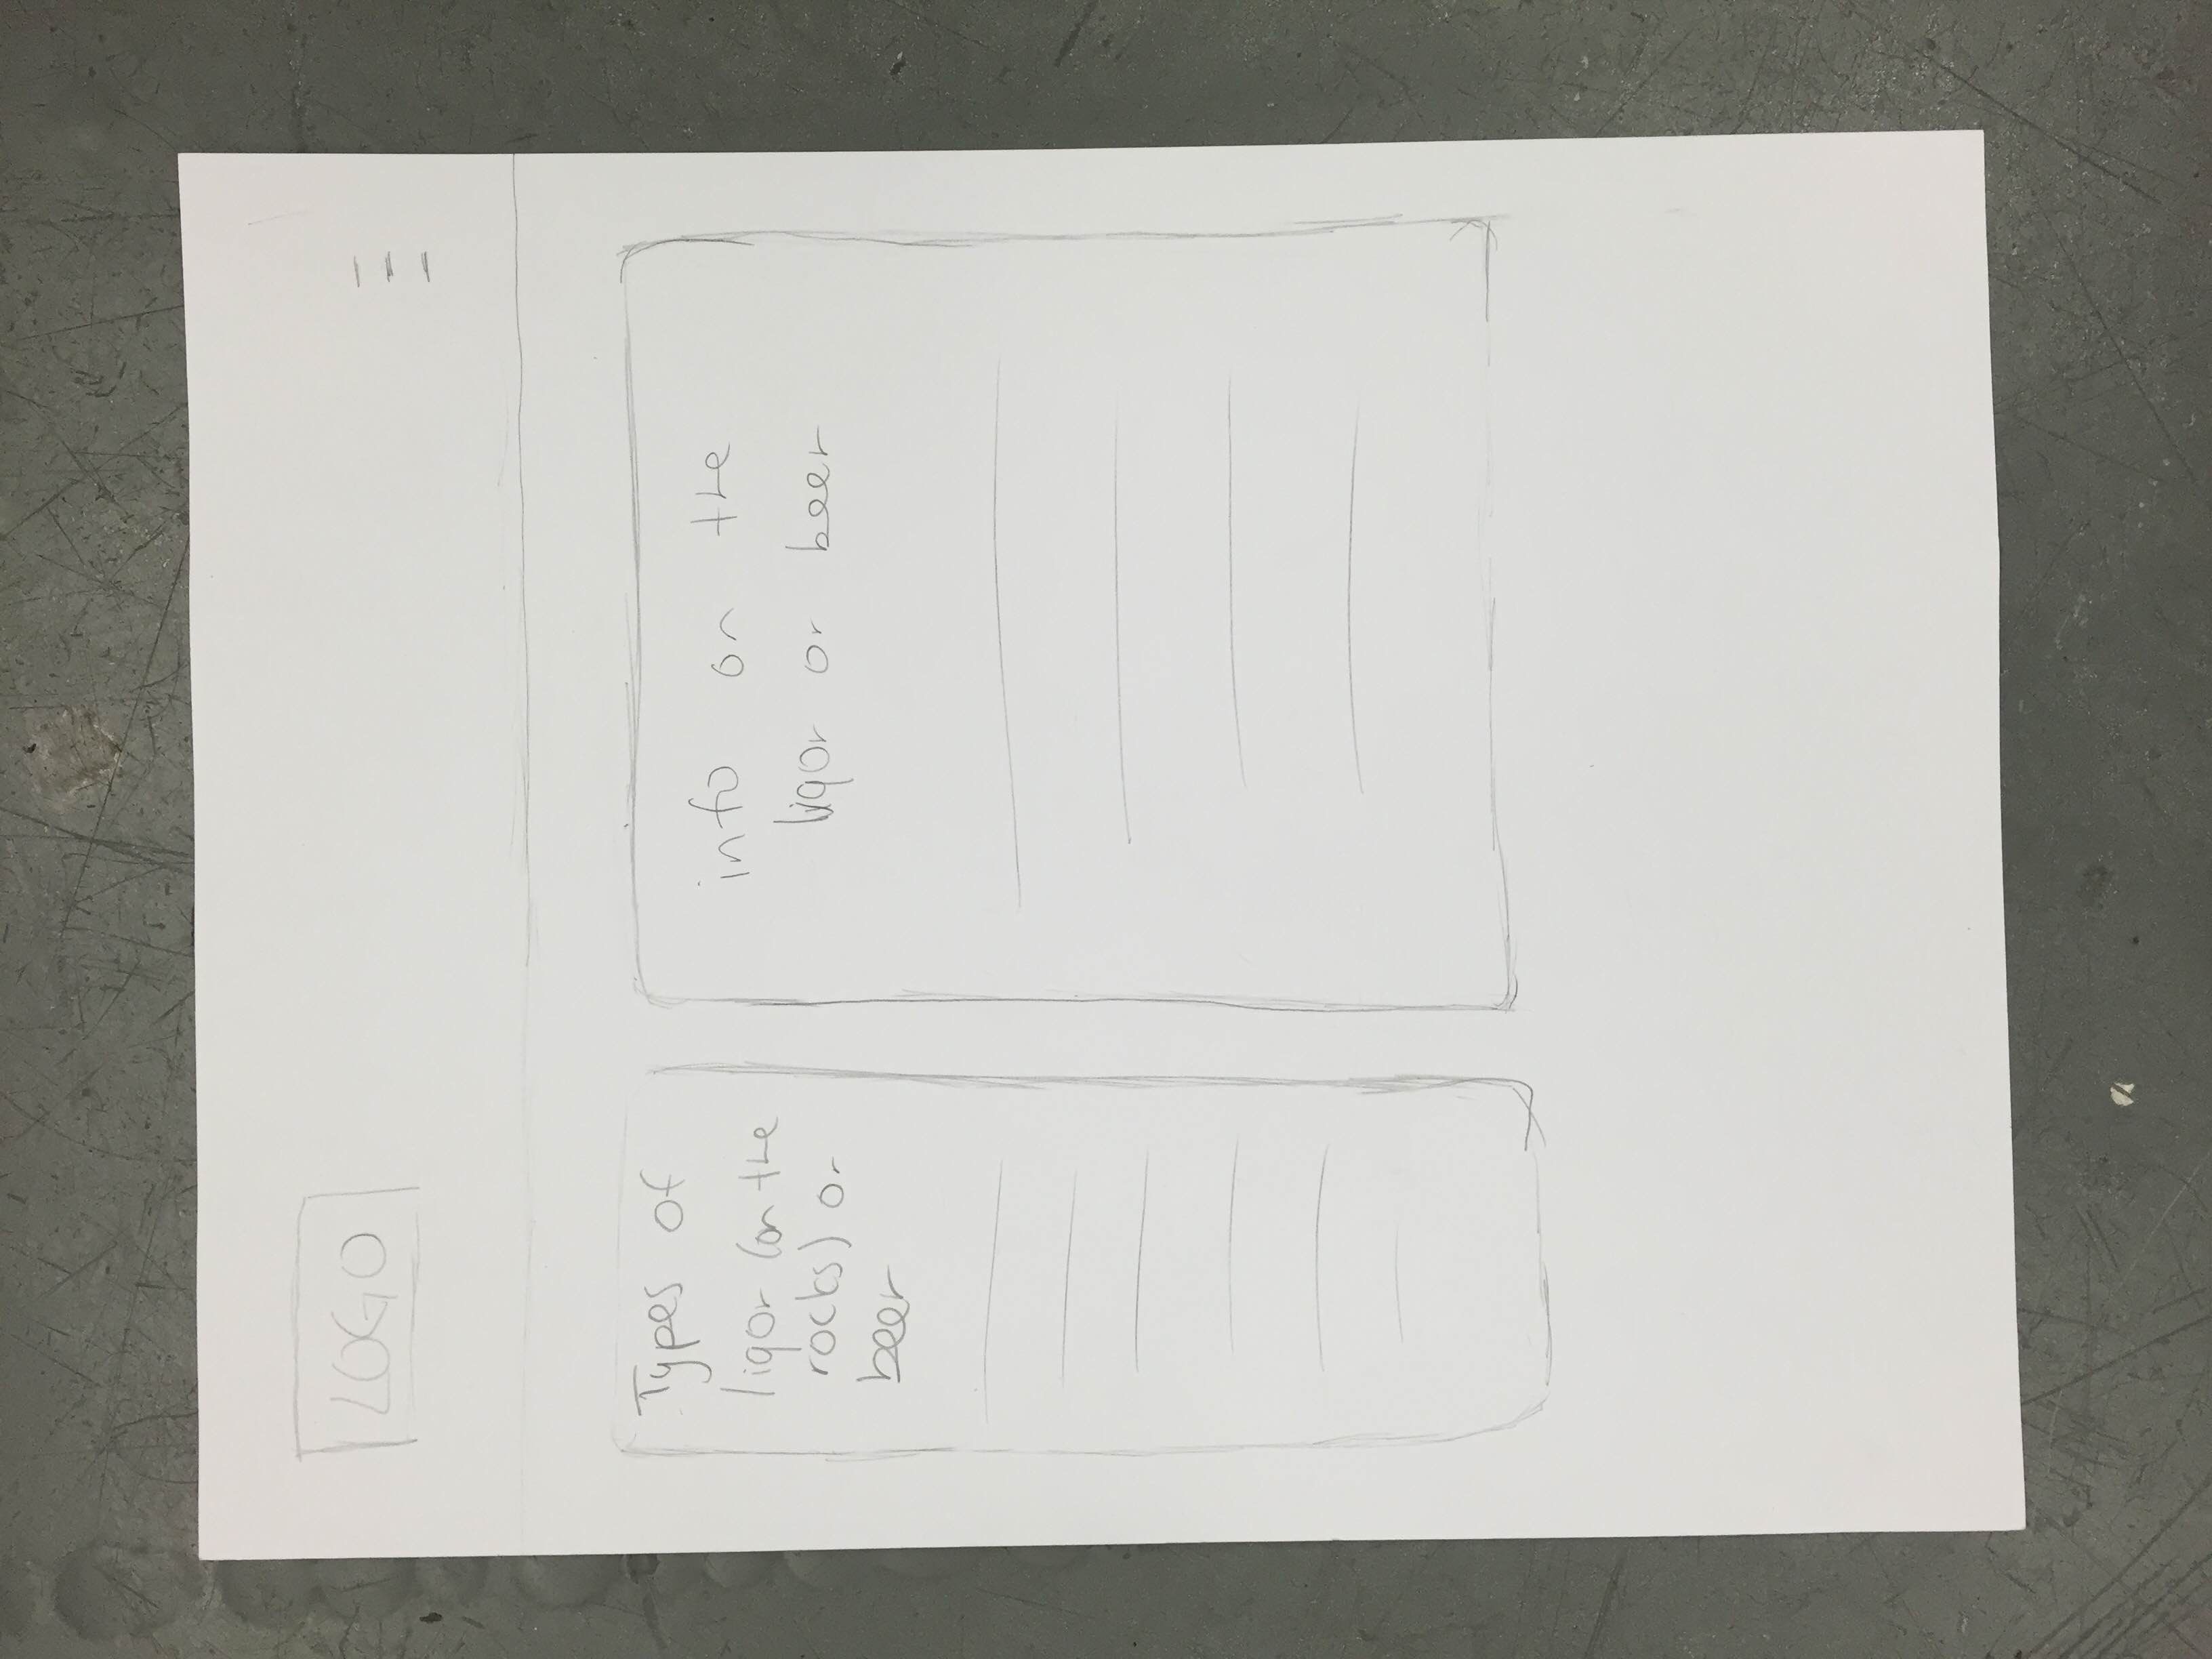 LOGO
Types of
liqor (on the
rocks) or
beer
info on the
liqor or beer